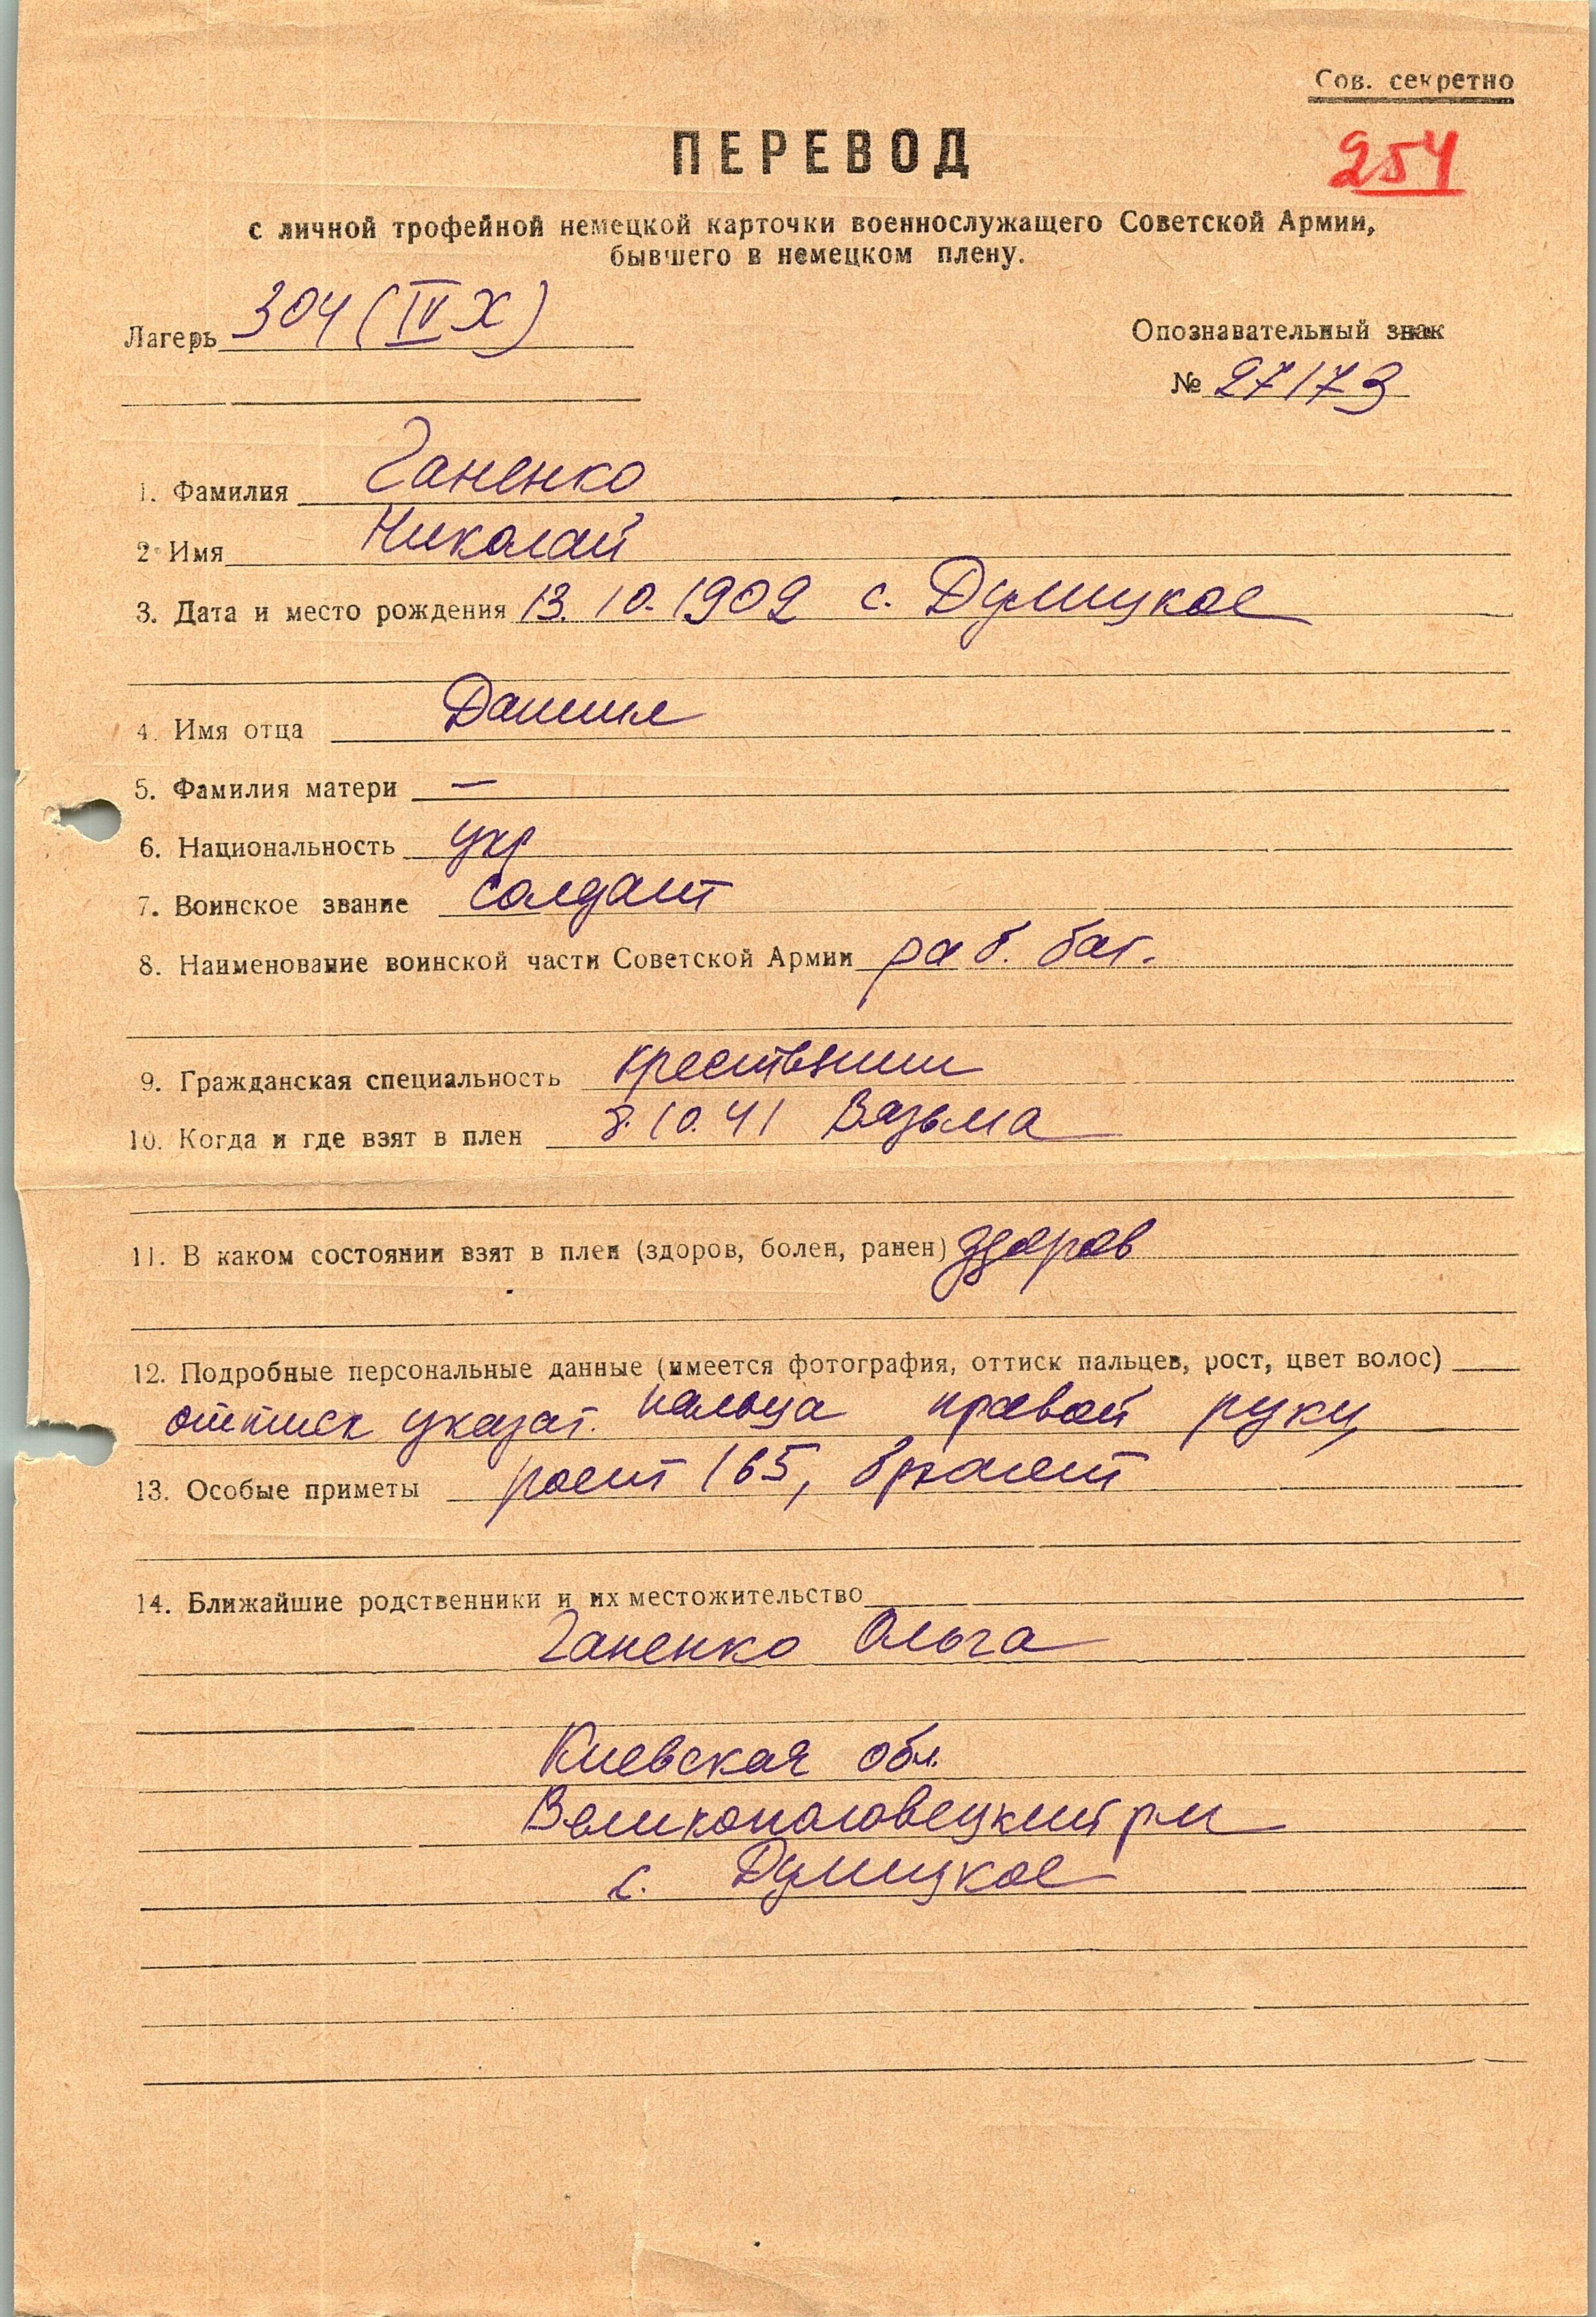 Сов. секретно
ПЕРЕВОД
254
с личной трофейной немецкой карточки военнослужащего Советской Армии,
бывшего в немецком плену.
Лагерь 304 (IV Х)
Опознавательный знак
№ 27173
1. Фамилия Ганенко
2. Имя Николай
3. Дата и место рождения 13.10.1902 с. Думицкое
4. Имя отца Даниил
5. Фамилия матери —
6. Национальность укр
7. Воинское звание солдат
8. Наименование воинской части Советской Армии раб. бат.
9. Гражданская специальность крестьянин
10. Когда и где взят в плен 8.10.41 Вязьма
11. В каком состоянии взят в плен (здоров, болен, ранен) здоров
12. Подробные персональные данные (имеется фотография, оттиск пальцев, рост, цвет волос)
оттиск указат. пальца правой руки,
13. Особые приметы рост 165, брюнет
14. Ближайшие родственники и их местожительство
Ганенко Ольга
Киевская обл.
Великополовецкий р-н
с. Думицкое